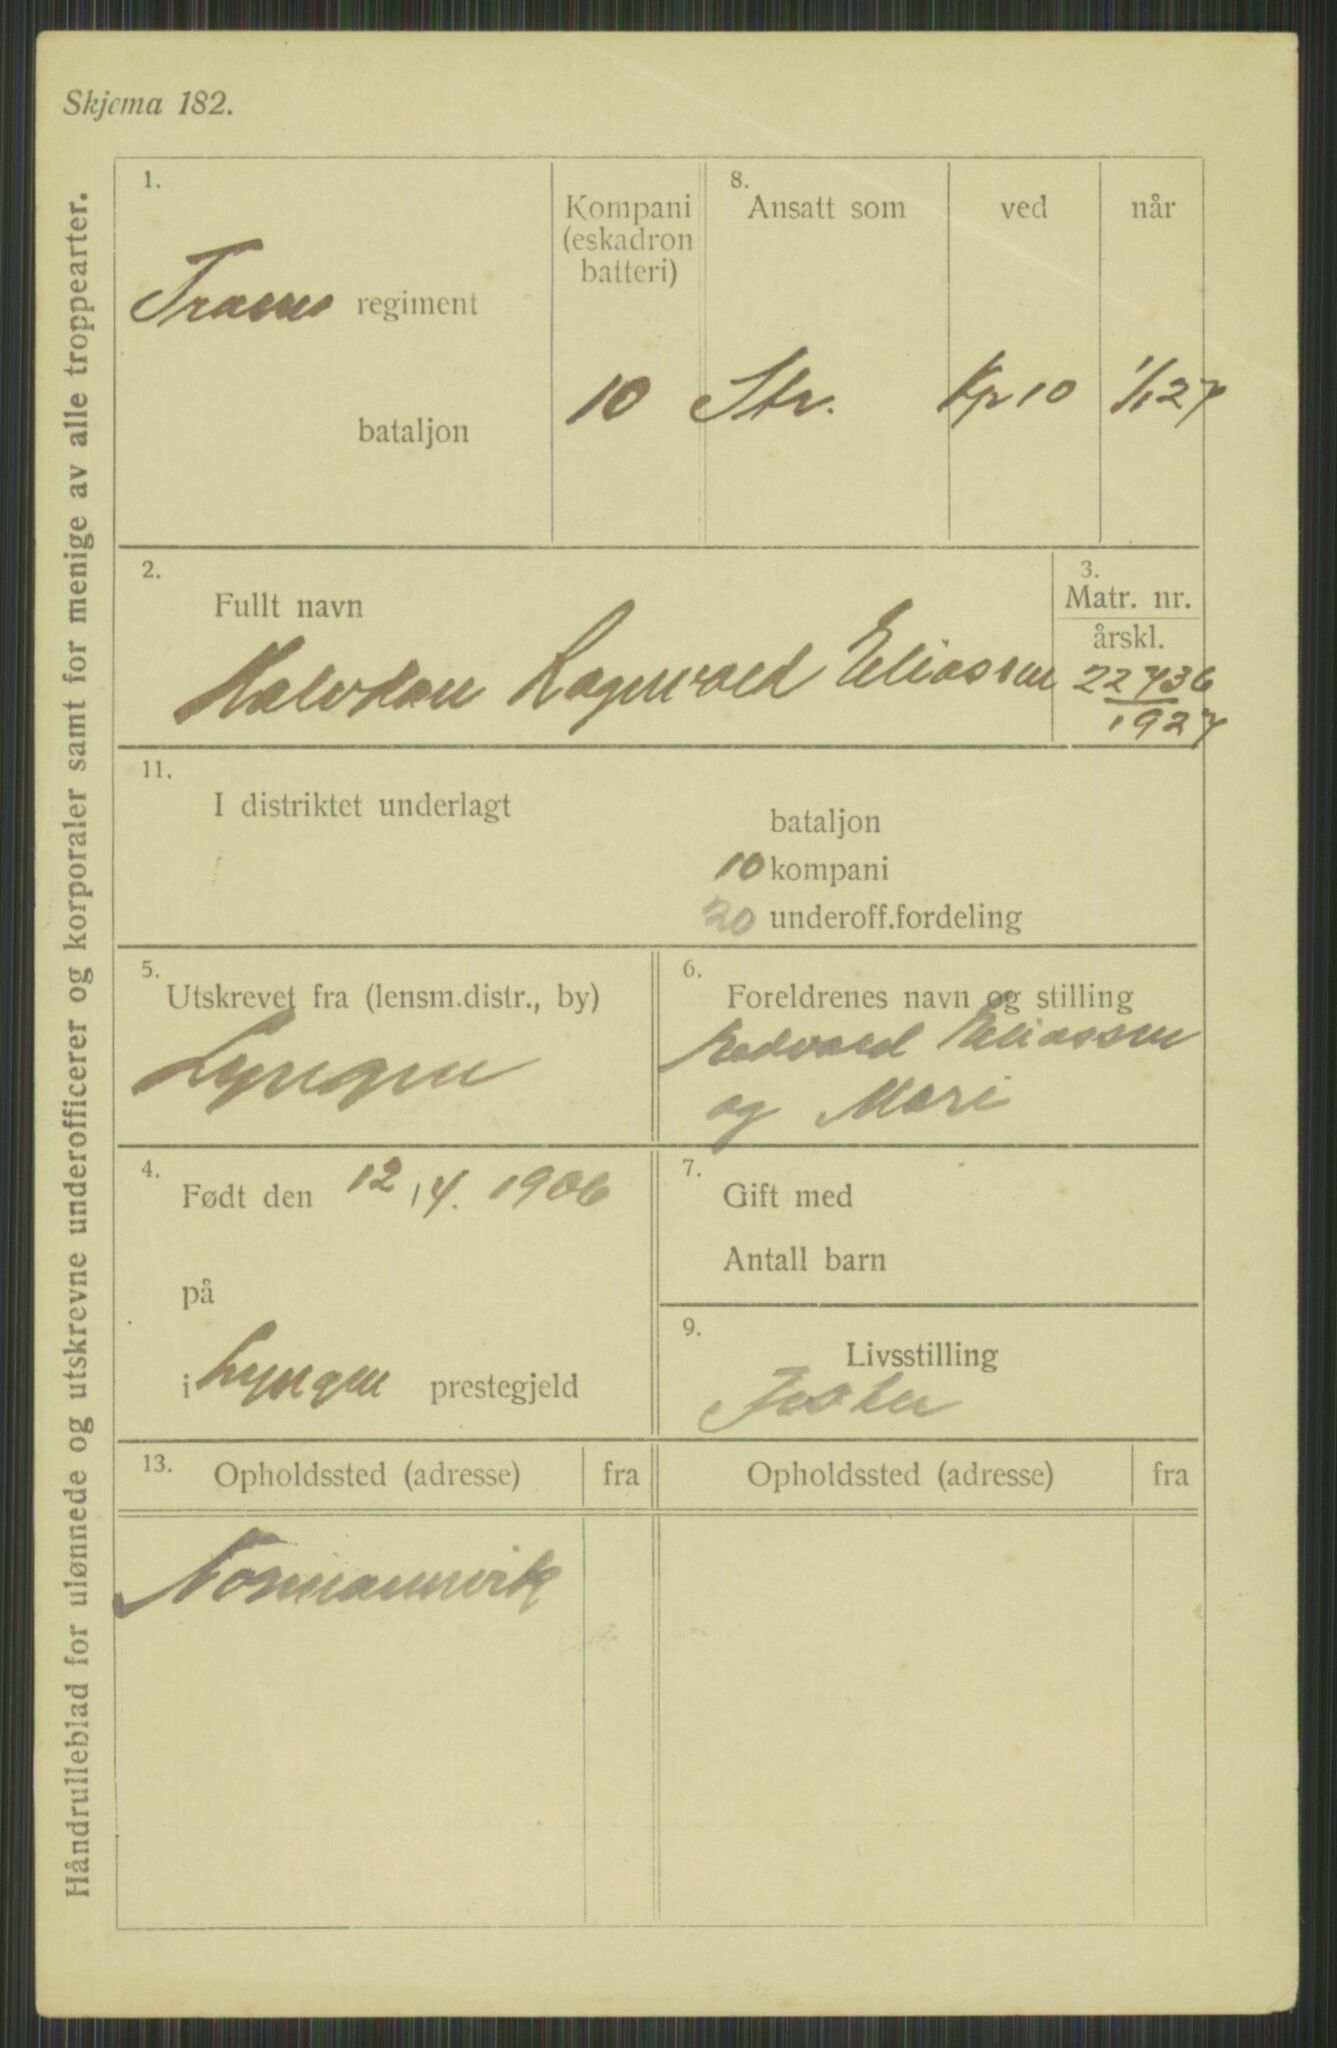 Skjema 182.
Håndrulleblad for ulønnede og utskrevne underofficerer og korporaler samt for menige av alle troppearter.
1.
Troms regiment
bataljon
Kompani
(eskadron
batteri)
10
8.
Ansatt som
ved
når
Str.
Kp 10
1/1 27
2.
Fullt navn
Halvdan Ragnvald Eliassen
3.
Matr. nr.
årskl.
22736
1927
11.
I distriktet underlagt
bataljon
10 kompani
20 underoff.fordeling
5.
Utskrevet fra (lensm.distr., by)
Lyngen
6.
Foreldrenes navn og stilling
Edvard Eliassen
og Mari
4.
Født den 12/4. 1906
på
i Lyngen prestegjeld
7.
Gift med
Antall barn
9.
Livsstilling
Fisker
13.
Opholdssted (adresse)
fra
Opholdssted (adresse)
fra
Normannvik